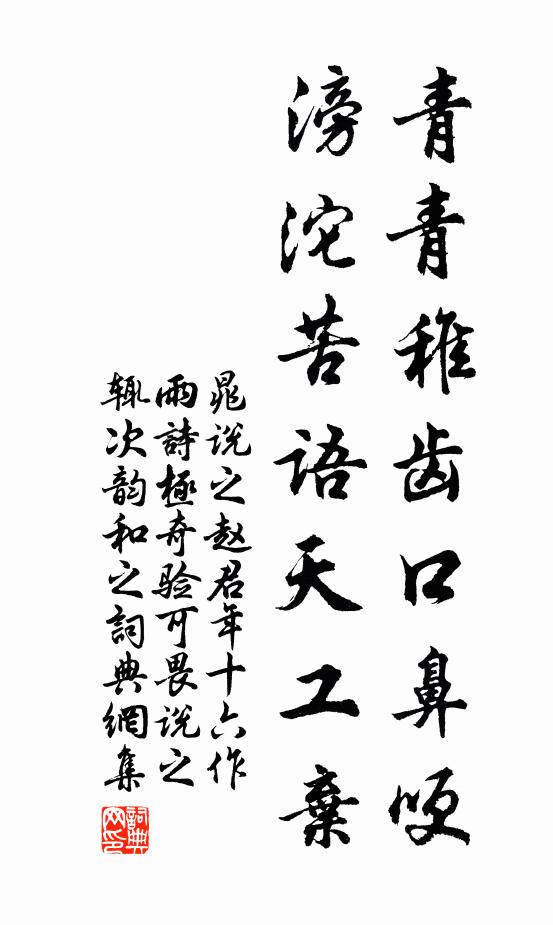 青青稚齿口鼻哽
滂沱苦語天工棄
晁说之赵君年十六作
雨詩極奇验可畏说之
輙次韵和之詞典網集
詞典网印